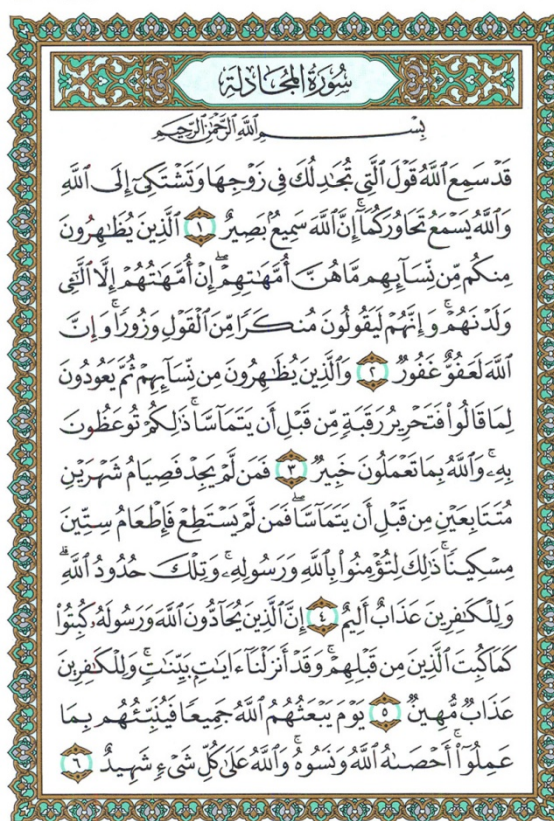 سُورَةُ المُجَادلَة
بِسْمِ ٱللَّهِ ٱلرَّحْمَٰنِ ٱلرَّحِيمِ
قَدْ سَمِعَ ٱللَّهُ قَوْلَ ٱلَّتِي تُجَٰدِلُكَ فِي زَوْجِهَا وَتَشْتَكِيٓ إِلَى ٱللَّهِ
وَٱللَّهُ يَسْمَعُ تَحَاوُرَكُمَآۚ إِنَّ ٱللَّهَ سَمِيعُۢ بَصِيرٌ ١ ٱلَّذِينَ يُظَٰهِرُونَ
مِنكُم مِّن نِّسَآئِهِم مَّا هُنَّ أُمَّهَٰتِهِمْۖ إِنْ أُمَّهَٰتُهُمْ إِلَّا ٱلَّٰٓـِٔي
وَلَدْنَهُمْۚ وَإِنَّهُمْ لَيَقُولُونَ مُنكَرًا مِّنَ ٱلْقَوْلِ وَزُورًاۚ وَإِنَّ
ٱللَّهَ لَعَفُوٌّ غَفُورٌ ٢ وَٱلَّذِينَ يُظَٰهِرُونَ مِن نِّسَآئِهِمْ ثُمَّ يَعُودُونَ
لِمَا قَالُوا۟ فَتَحْرِيرُ رَقَبَةٍ مِّن قَبْلِ أَن يَتَمَآسَّاۚ ذَٰلِكُمْ تُوعَظُونَ
بِهِۦۚ وَٱللَّهُ بِمَا تَعْمَلُونَ خَبِيرٌ ٣ فَمَن لَّمْ يَجِدْ فَصِيَامُ شَهْرَيْنِ
مُتَتَابِعَيْنِ مِن قَبْلِ أَن يَتَمَآسَّاۖ فَمَن لَّمْ يَسْتَطِعْ فَإِطْعَامُ سِتِّينَ
مِسْكِينًاۚ ذَٰلِكَ لِتُؤْمِنُوا۟ بِٱللَّهِ وَرَسُولِهِۦۚ وَتِلْكَ حُدُودُ ٱللَّهِۗ
وَلِلْكَٰفِرِينَ عَذَابٌ أَلِيمٌ ٤ إِنَّ ٱلَّذِينَ يُحَآدُّونَ ٱللَّهَ وَرَسُولَهُۥ كُبِتُوا۟
كَمَا كُبِتَ ٱلَّذِينَ مِن قَبْلِهِمْۚ وَقَدْ أَنزَلْنَآ ءَايَٰتٍۭ بَيِّنَٰتٍۚ وَلِلْكَٰفِرِينَ
عَذَابٌ مُّهِينٌ ٥ يَوْمَ يَبْعَثُهُمُ ٱللَّهُ جَمِيعًا فَيُنَبِّئُهُم بِمَا
عَمِلُوٓا۟ۚ أَحْصَىٰهُ ٱللَّهُ وَنَسُوهُۚ وَٱللَّهُ عَلَىٰ كُلِّ شَىْءٍ شَهِيدٌ ٦